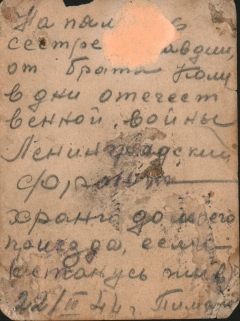 На па
сестре
от брата Коли
в дни отечест
венной войны
Ленинградский
фронт
храни до моего
приезда, если
останусь жив
22/II 44 г.